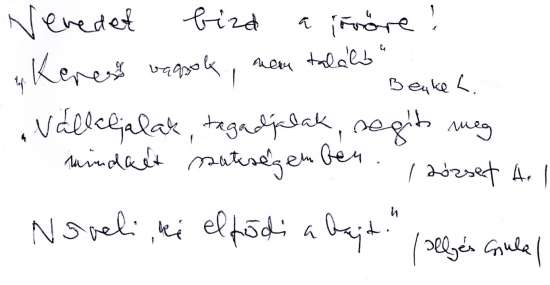 Nevedet bízd a jövőre!
„Kereső vagyok, nem találó"
Benke L.
„Vállaljalak, tagadjalak, segíts meg
mindkét szükségemben.
/József A./
Növeli, ki elfödi a bajt."
/Illyés Gyula/